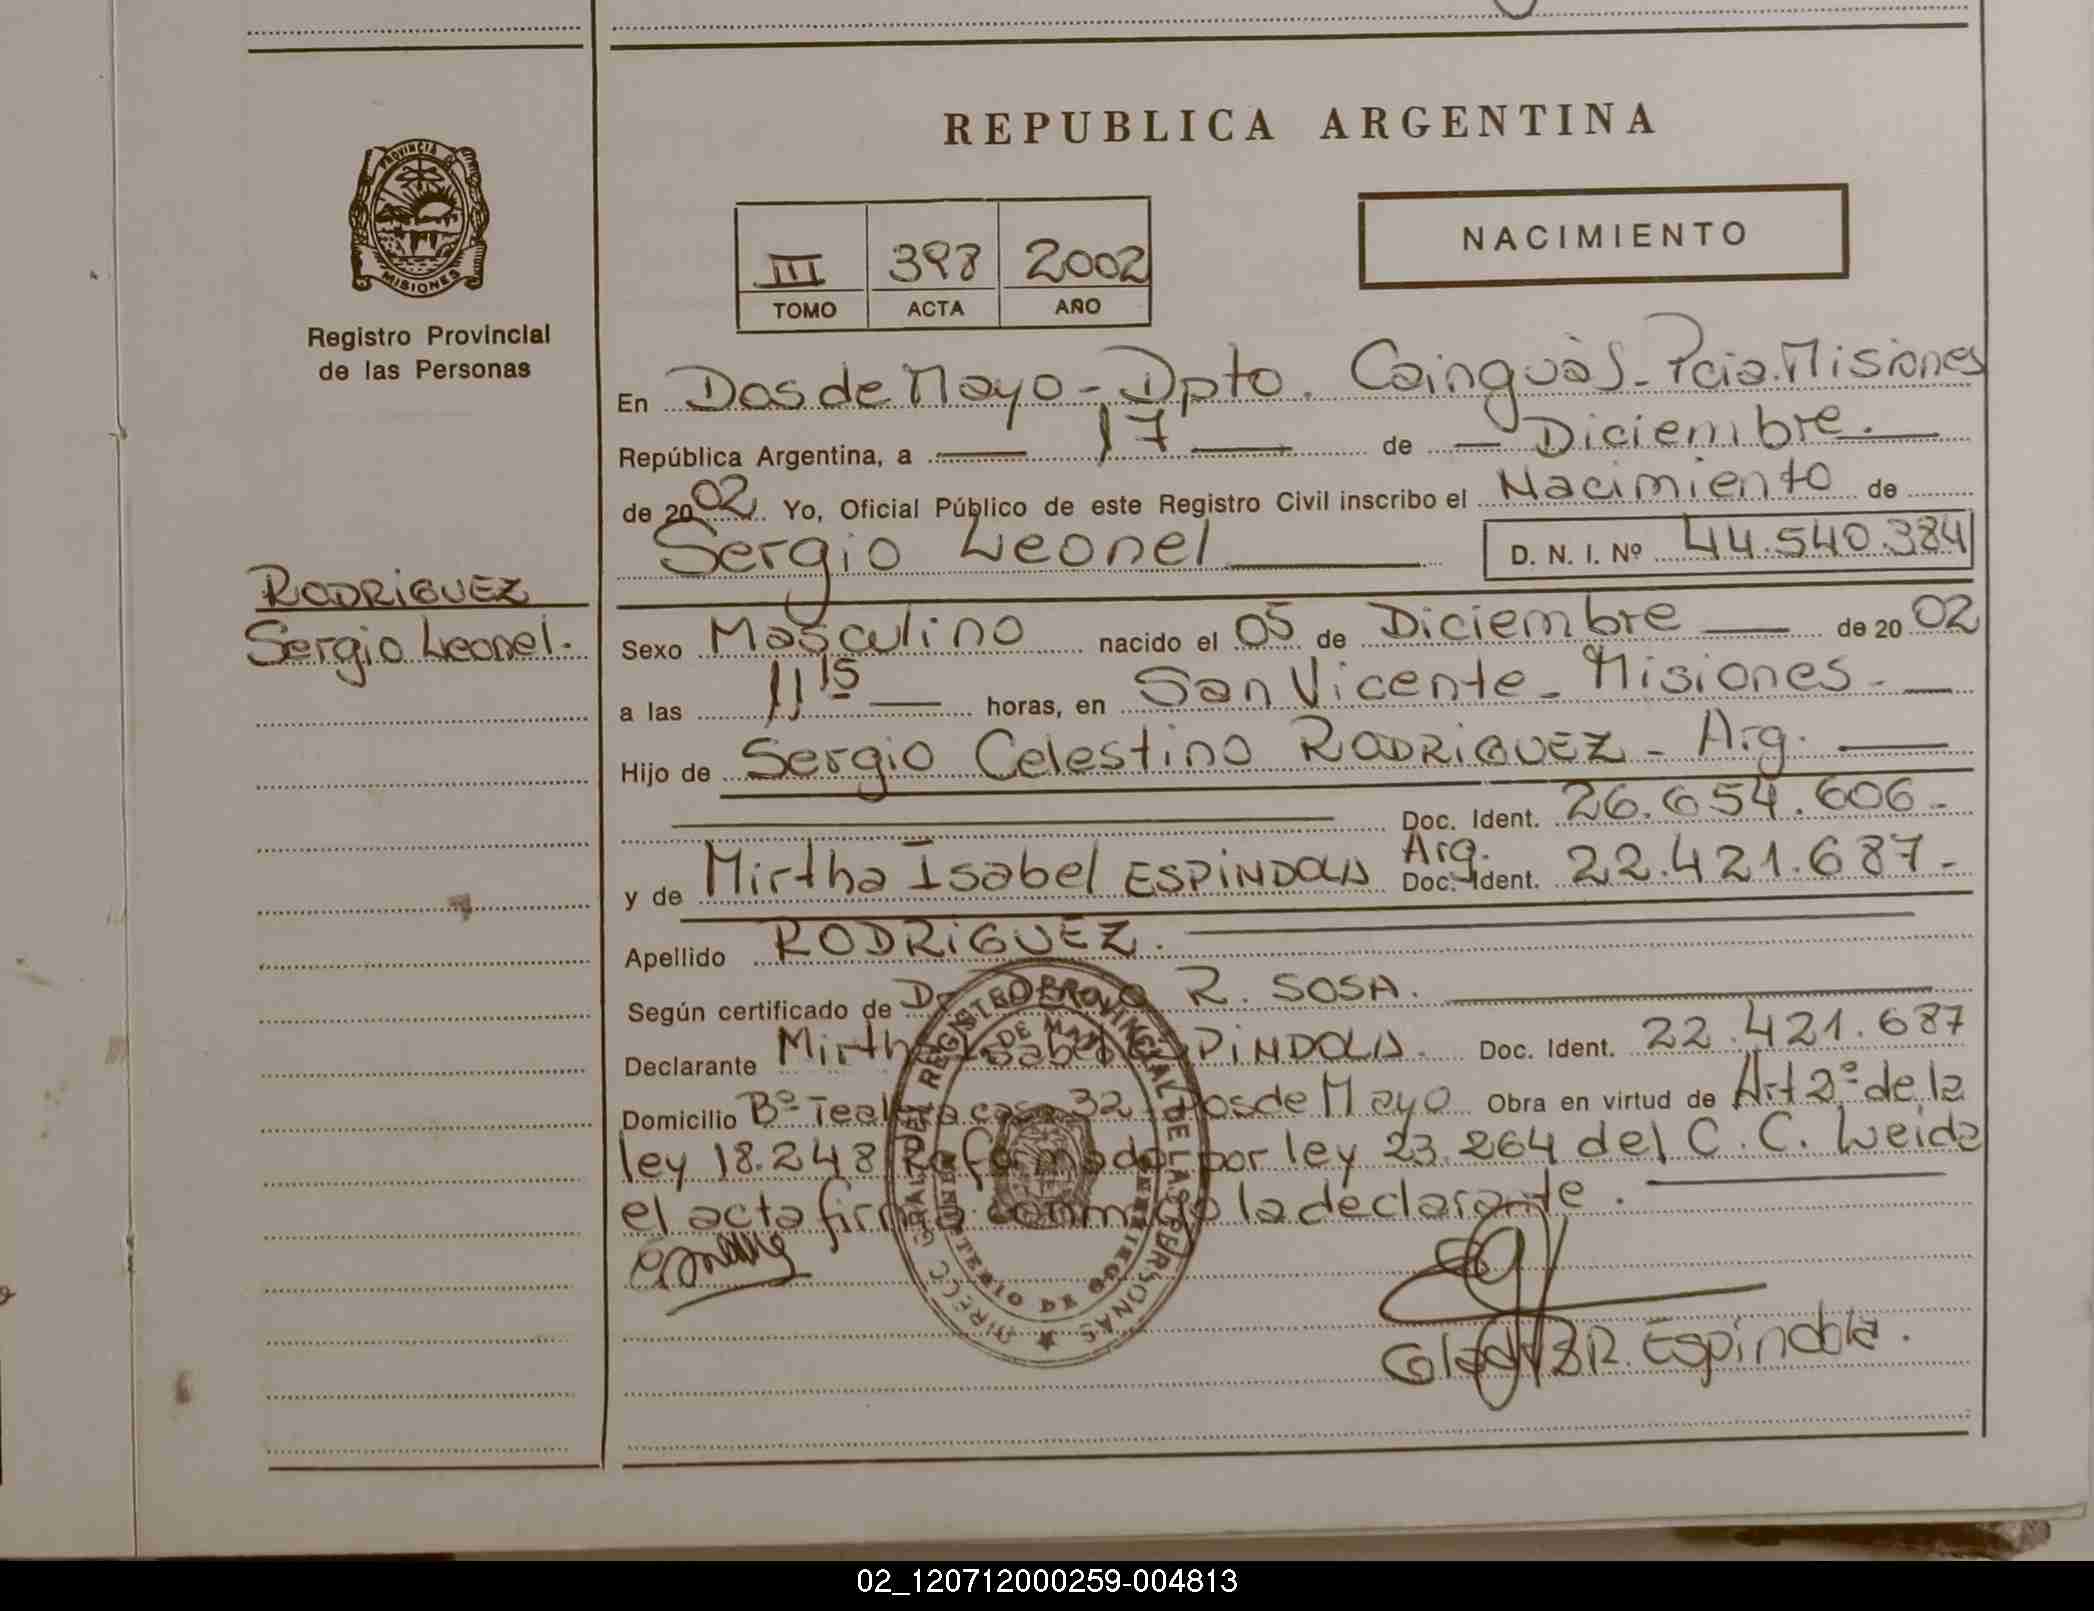 REPUBLICA ARGENTINA
PROVINCIA D
MISIONES
Registro Provincial
de las Personas
NACIMIENTO
III 398 2002
TOMO ACTA AÑO
En Dos de Mayo - Dpto. Cainguàs - Pcia. Misiones
República Argentina, a 17 de Diciembre.
de 2002 Yo, Oficial Público de este Registro Civil inscribo el Nacimiento de
Sergio Leonel D. N. I. Nº 44.540.384
RODRIGUEZ
Sergio Leonel.
Sexo Masculino nacido el 05 de Diciembre de 2002
a las 11 15 horas, en San Vicente - Misiones -
Hijo de Sergio Celestino RODRIGUEZ - Arg.
Doc. Ident. 26.654.606 -
y de Mirtha Isabel ESPINDOLA Arg. Doc. Ident. 22.421.687 -
Apellido RODRIGUEZ.
Según certificado de R. SOSA.
Declarante Mirtha Isabel ESPINDOLA. Doc. Ident. 22.421.687
Domicilio Bº Tealera casa 32 Dos de Mayo Obra en virtud de Art 2º de la
ley 18.248 Reformado por ley 23.264 del C. C. Leida
el acta firma conmigo la declarante.
DIRECC. GRAL. DEL REGISTRO PROVINCIAL DE LAS PERSONAS
MINISTERIO DE GOBIERNO
DOS DE MAYO
R. Espindola.
02_120712000259-004813